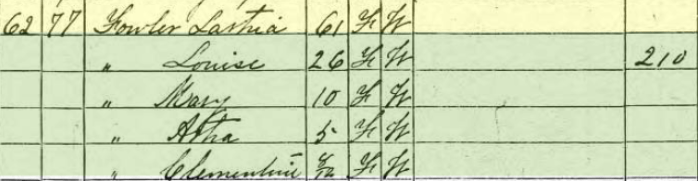 62 77 Fowler Lasthia 61 F W
" Louise 26 F W 210
" Mary 10 F W
" Atha 5 F W
" Clementine 8/12 F W